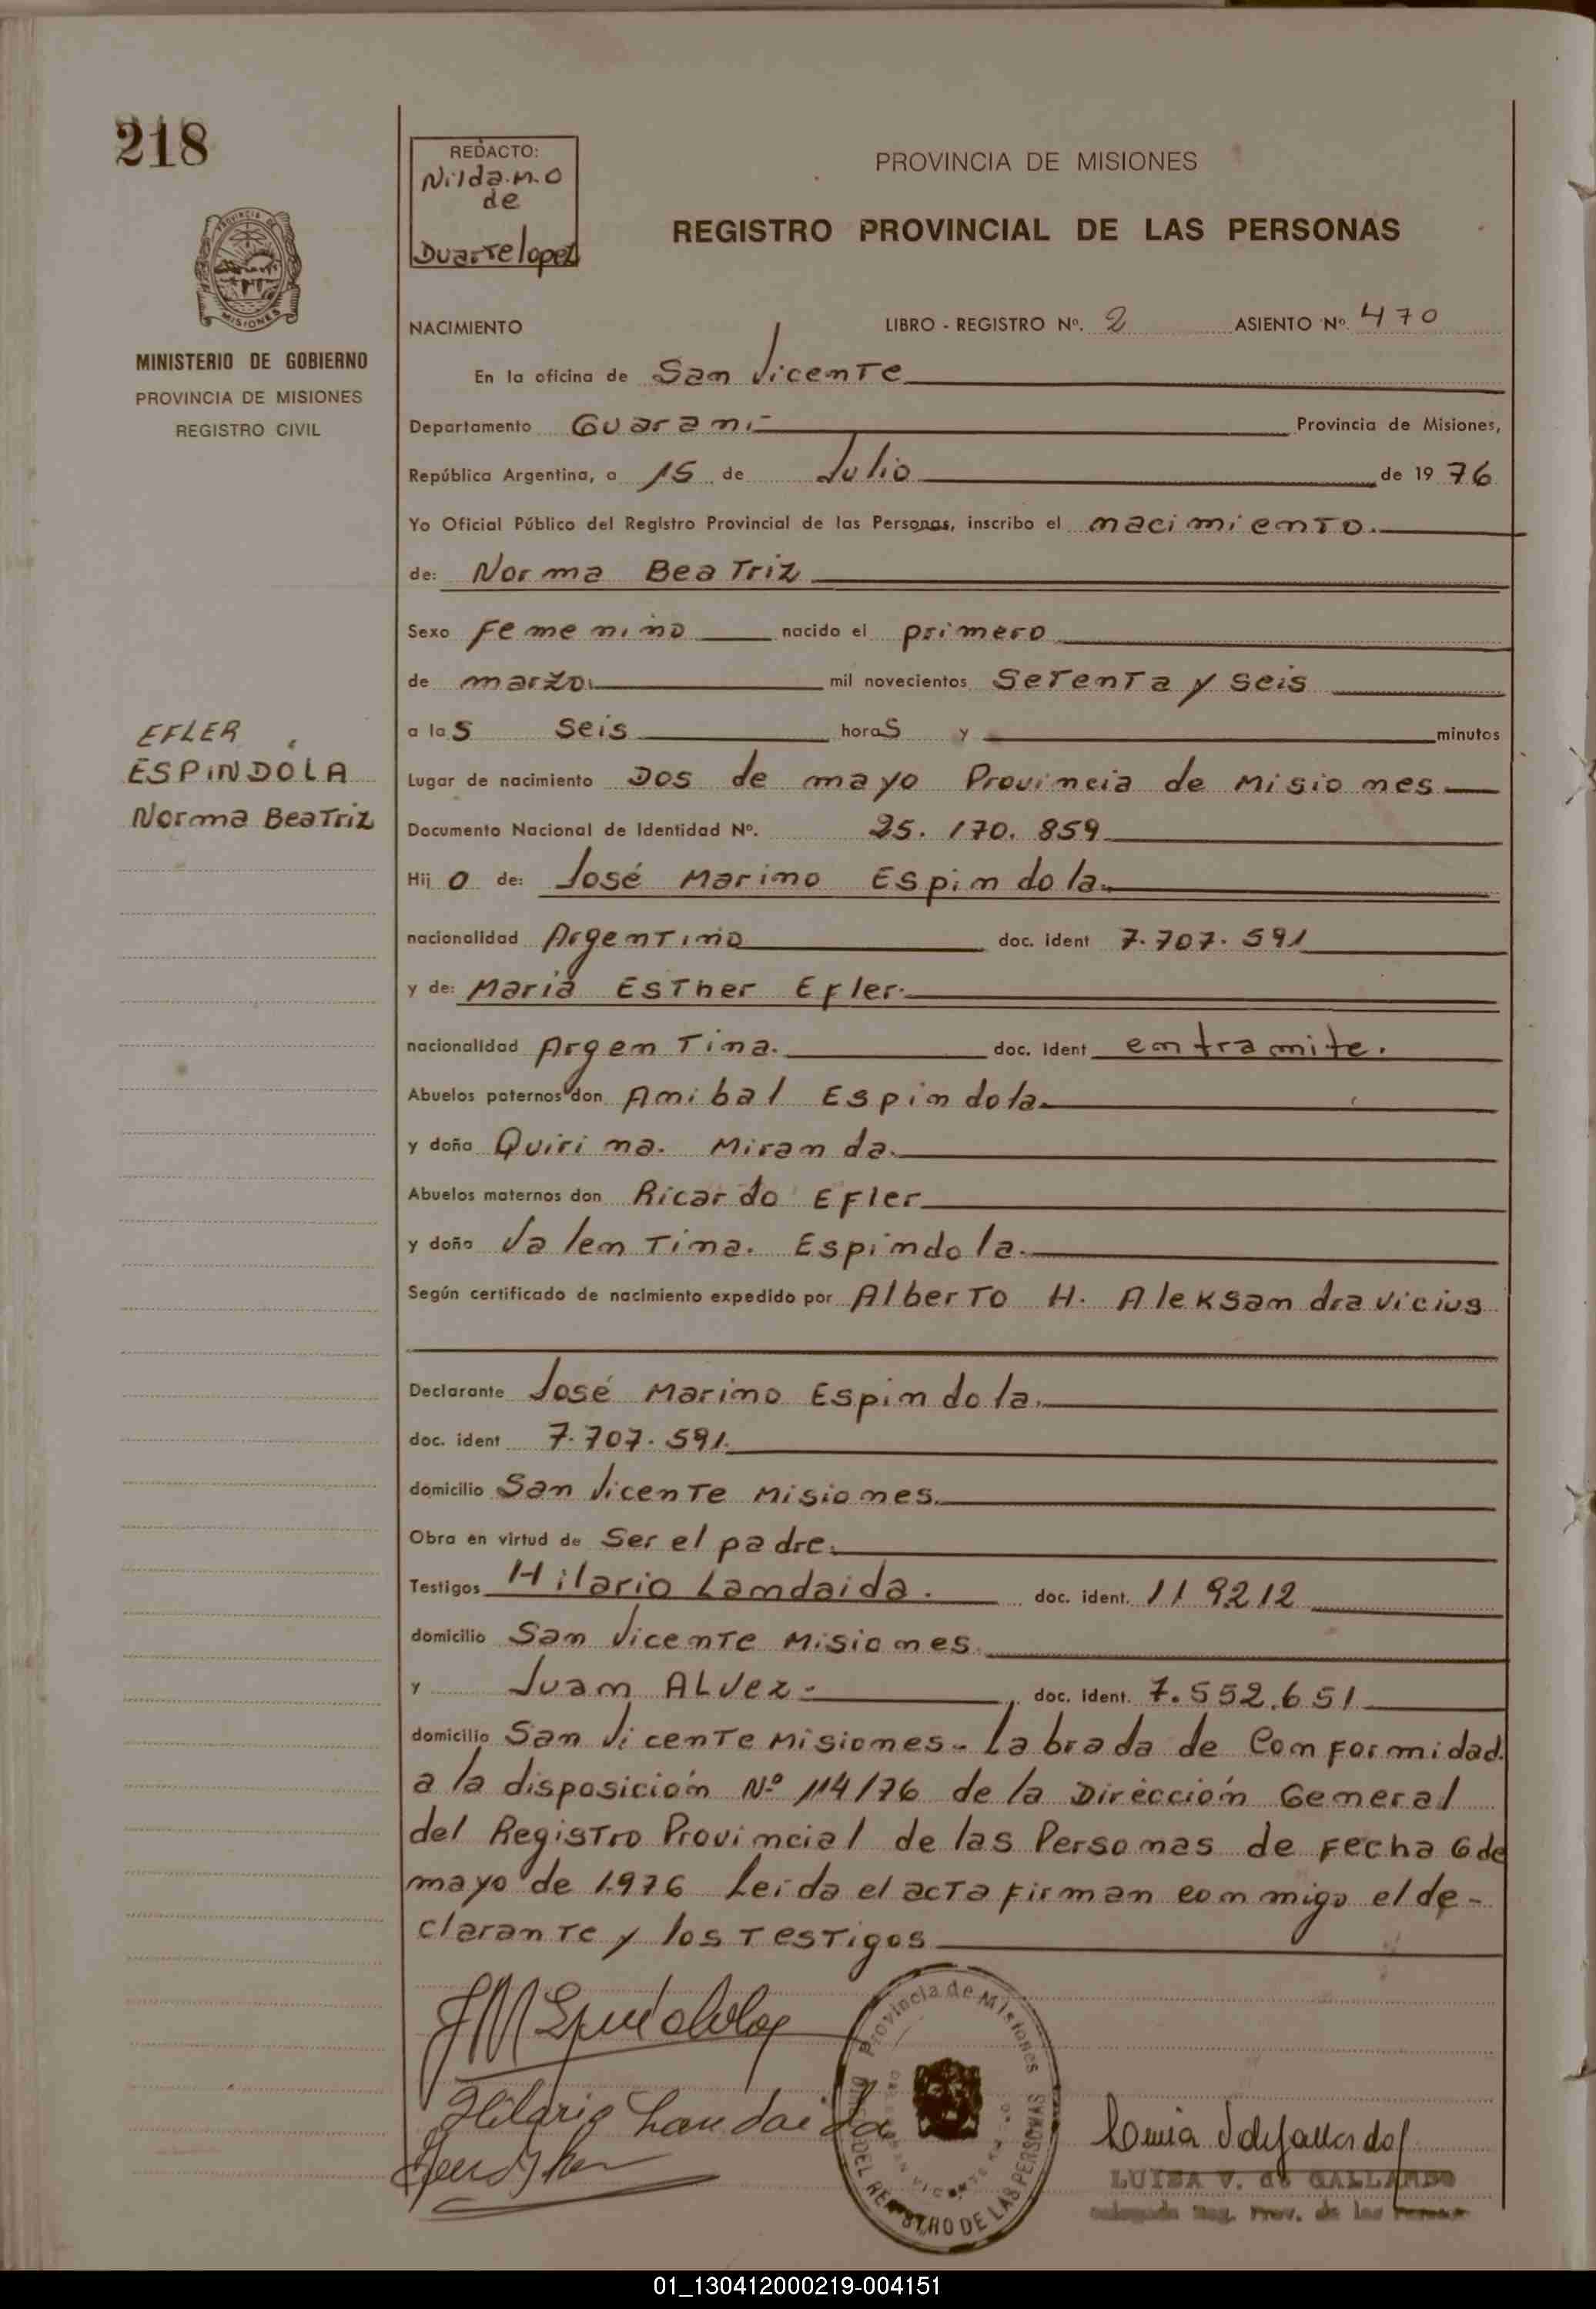 218
REDACTO:
Nilda.M.O
de
Duarte lopez
PROVINCIA DE MISIONES
REGISTRO PROVINCIAL DE LAS PERSONAS
MISIONES
MINISTERIO DE GOBIERNO
PROVINCIA DE MISIONES
REGISTRO CIVIL
NACIMIENTO LIBRO - REGISTRO Nº. 2 ASIENTO Nº. 470
En la oficina de San Vicente
Departamento Guaraní Provincia de Misiones,
República Argentina, a 15 de Julio de 1976
Yo Oficial Público del Registro Provincial de las Personas, inscribo el nacimiento.
de: Norma Beatriz
Sexo Femenino nacido el primero
de marzo mil novecientos setenta y seis
a las seis horas y minutos
EFLER
ESPINDOLA
Norma Beatriz
Lugar de nacimiento Dos de mayo Provincia de Misiones
Documento Nacional de Identidad Nº. 25.170.859
Hijo de: José Marino Espindola
nacionalidad Argentino doc. ident 7.707.591
y de: Maria Esther Efler.
nacionalidad Argentina. doc. ident en tramite.
Abuelos paternos don Anibal Espindola
y doña Quirina. Miranda.
Abuelos maternos don Ricardo Efler
y doña Valentina. Espindola.
Según certificado de nacimiento expedido por Alberto H. Aleksandravicius
Declarante José Marino Espindola.
doc. ident 7.707.591.
domicilio San Vicente Misiones.
Obra en virtud de Ser el padre.
Testigos Hilario Landaida. doc. ident. 119212
domicilio San Vicente Misiones.
y Juan ALvez.- doc. ident. 7.552.651
domicilio San Vicente Misiones- Labrada de Conformidad.
a la disposición Nº 114/76 de la Dirección General
del Registro Provincial de las Personas de Fecha 6 de
mayo de 1.976 Leída el acta firman conmigo el de-
clarante y los testigos
JM Espindola
Provincia de Misiones
DEL REGISTRO DE LAS PERSONAS
Hilario Landaida
LUISA V. de GALLARDO
Delegada Reg. Prov. de las Personas
01_130412000219-004151